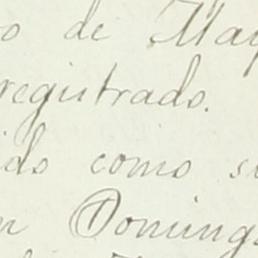 o de May
registrado.
ido como si
n Domingo